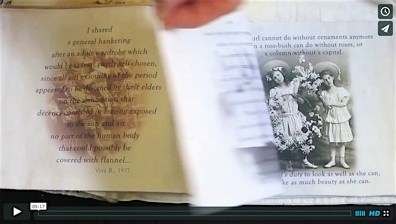 I shared
a general hankering
after an adult wardrobe which
would be
since all
appeared to be doomed by their elders
decency
to the sun and air
no part of the human body
that could possibly be
covered with flannel...
Viva B., 1937
girl cannot do without ornaments anymore
n a rose-bush can do without roses, or
a column without a capital.
duty to look as well as she can,
ke as much beauty as she can.
05:17
HD